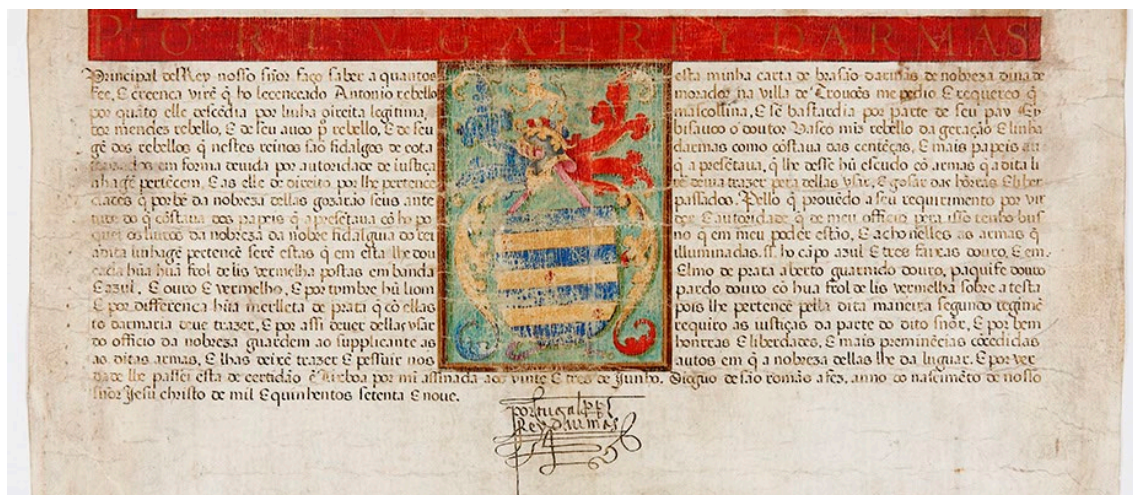 PORTVGAL REY DARMAS
Principal delRey nosso sñor faço saber a quantos esta minha carta de brasão darmas de nobreza dina de
fee, E creença virẽ q̃ ho lecenceado Antonio rebello morador na villa de me pedio E requereo q̃
por quãto elle descẽdia por linha direita legitima, mascollina, E sẽ bastardia por parte de seu pay
tor mendes rebello, E de seu auoo p̃ rebello, E de seu bisauoo o doutor Vasco rebello da geração E linha
gẽ dos rebellos q̃ nestes reinos são fidalgos de cota darmas como cõstaua das centẽças, E mais papeis
em forma deuida por autoridade de iustiça q̃ a presẽtaua, q̃ lhe desse hũ escudo cõ armas q̃ a dita li
nhagẽ pertẽcem, E as elle de direito por lhe pertence deuia trazer pera dellas vsar, E gosar das hõrras E liber
dades q̃ por bẽ da nobreza dellas gozarão seus ante passados. Pello q̃ prouẽdo a seu requirimento por vir
tude do q̃ cõstaua dos papeis q̃ apresẽtaua cõ ho po der E autoridade q̃ de meu officio pera isso tenho bus
quei os liuros da nobreza da nobre fidalguia do rei no q̃ em meu poder estão, E acho nelles as armas q̃
a dita linhagẽ pertencẽ serẽ estas q̃ em esta lhe dou illuminadas. ho cãpo azul E tres faixas douro, E em
cada hũa hũa frol de lis vermelha postas em banda Elmo de prata aberto guarnido douro, paquife douro
E azul, E ouro E vermelho, E por timbre hũ liom pardo douro cõ hua frol de lis vermelha sobre a testa
E por differença hũa merlleta de prata q̃ cõ ellas pois lhe pertencẽ pella dita maneira segundo regimẽ
to darmaria deue trazer, E por assi deuer dellas vsar requiro as iustiças da parte do dito sñor, E por bem
do officio da nobreza guardem ao supplicante as honrras E liberdades, E mais preminẽcias cõcedidas
as ditas armas, E lhas deixẽ trazer E pessuir nos autos em q̃ a nobreza dellas lhe da luguar. E por ver
dade lhe passei esta de certidão ẽ lixboa por mĩ assinada aos vinte E tres de Junho. Dioguo de são romão a fez, anno do nascimẽto de nosso
sñor Jesu christo de mil E quinhentos setenta E noue.
portugal
Rey darmas